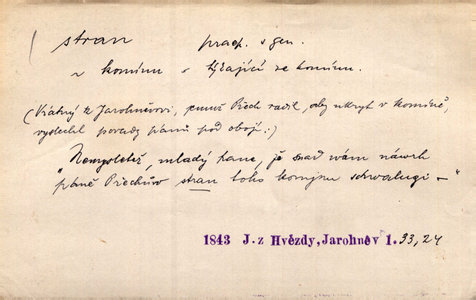 stran praep. s gen.
~ komínu = týkající se komínu.
(Vrátný k Jarohněvovi, jemuž Přech radil, aby ukryt v komíně,
vyslechl porady pánů pod obojí.)
"Nemyslete, mladý pane, že snad vám návrh
páně Přechův stran toho komjnu schwalugi —"
1843 J. z Hvězdy, Jarohněv 1. 33, 24